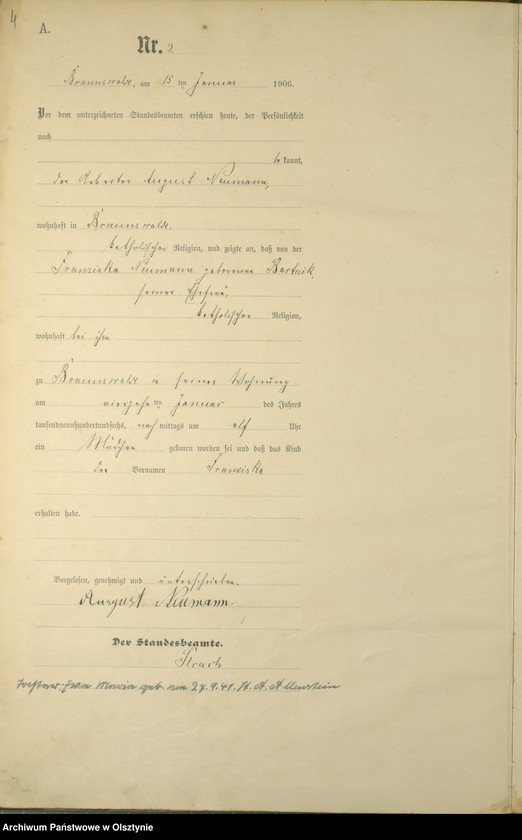 4
A.
Nr. 2
Braunswalde, am 15 ten Januar 1906.
Vor dem unterzeichneten Standesbeamten erschien heute, der Persönlichkeit
nach
be kannt,
der Arbeiter August Neumann,
wohnhaft in Braunswalde,
katholischer Religion, und zeigte an, daß von der
Franziska Neumann geborenen Bartnik,
seiner Ehefrau,
katholischer Religion,
wohnhaft bei ihm
zu Braunswalde in seiner Wohnung
am vierzehn ten Januar des Jahres
tausendneunhundertundsechs, nach mittags um elf Uhr
ein Mädchen geboren worden sei und daß das Kind
den Vornamen Franziska
erhalten habe.
Vorgelesen, genehmigt und unterschrieben.
August Neumann.
Der Standesbeamte.
Maria geb. am 27.9.41. St. A. Allenstein
Archiwum Państwowe w Olsztynie